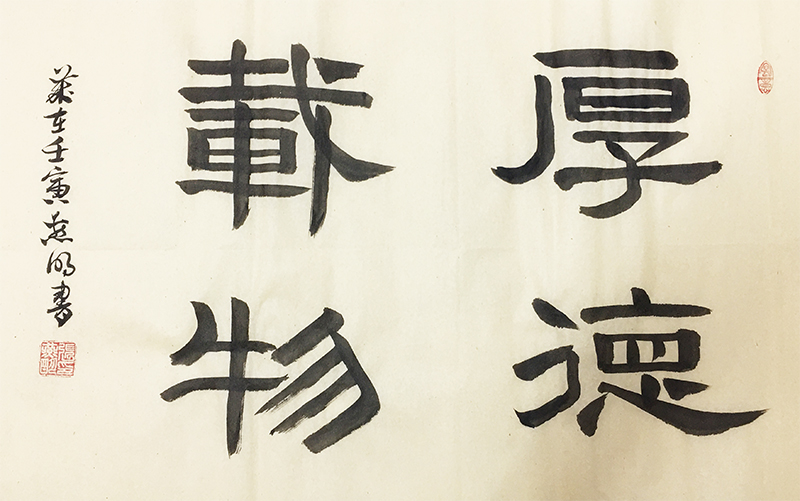 厚德
載物
歲在壬寅燕明書